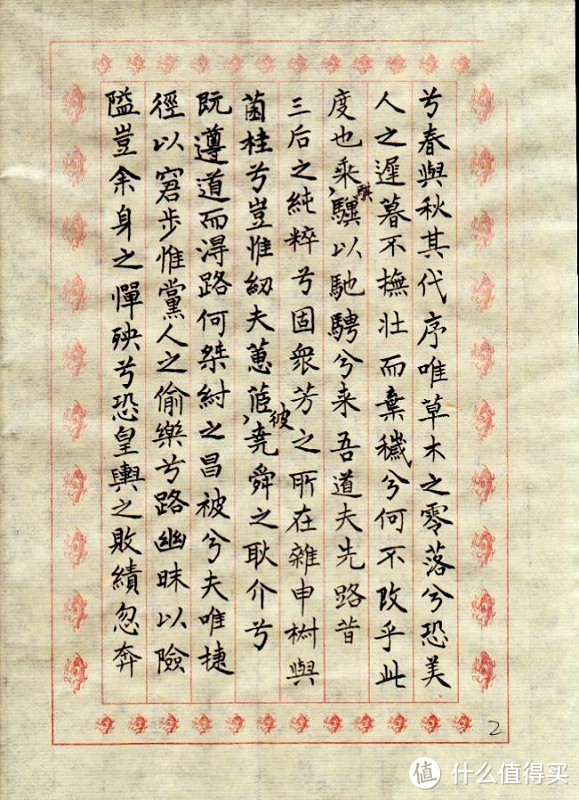 兮春與秋其代序唯草木之零落兮恐美
人之遲暮不撫壯而棄穢兮何不改乎此
度也乘騏驥以馳騁兮来吾道夫先路昔
三后之純粹兮固衆芳之所在雜申椒與
菌桂兮豈惟紉夫蕙茝彼堯舜之耿介兮
既遵道而得路何桀紂之昌被兮夫唯捷
徑以窘步惟黨人之偷樂兮路幽昧以險
隘豈余身之憚殃兮恐皇輿之敗績忽奔
2
值 什么值得买